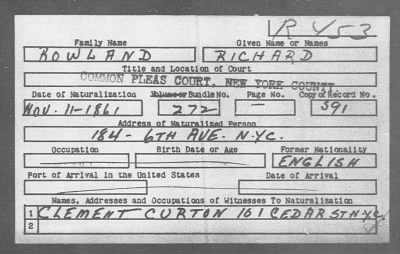 VR 453
Family Name Given Name or Names
ROWLAND RICHARD
Title and Location of Court
COMMON PLEAS COURT, NEW YORK COUNTY
Date of Naturalization Volume or Bundle No. Page No. Copy of Record No.
NOV. 11-1861 272 — 391
Address of Naturalized Person
184 - 6TH AVE. N.Y.C.
Occupation Birth Date or Age Former Nationality
ENGLISH
Port of Arrival in the United States Date of Arrival
Names, Addresses and Occupations of Witnesses To Naturalization
1 CLEMENT CURTON 101 CEDAR ST N.Y.C.
2